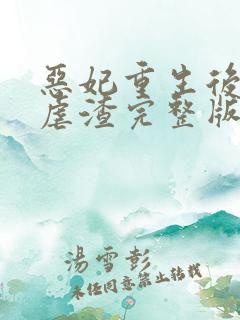 惡妃重生後
虐渣完整版
湯雪彭
未經同意禁止轉載